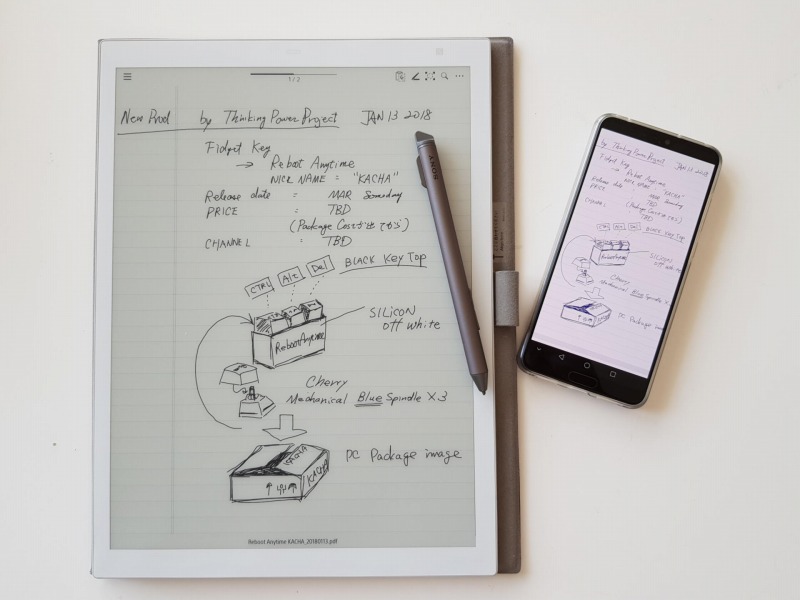 1 / 2
New Prod by Thinking Power Project JAN 13 2018
Fidget Key
→ Reboot Anytime
NICK NAME = "KACHA"
Release date = MAR Someday
PRICE : TBD
(Package Costが出てから)
CHANNEL : TBD
CTRL Alt Del BLACK Key Top
Reboot Anytime
SILICON
off white
Cherry
Mechanical Blue Spindle X 3
KACHA
KACHA
PC Package image
Reboot Anytime KACHA_20180113.pdf
SONY
by Thinking Power Project JAN 13 2018
Fidget Key
→ Reboot Anytime
NICK NAME = "KACHA"
Release date = MAR Someday
PRICE : TBD
(Package Costが出てから)
CHANNEL : TBD
CTRL Alt Del BLACK Key Top
Reboot Anytime
SILICON
off white
Cherry
Mechanical Blue Spindle X
PC Package ima